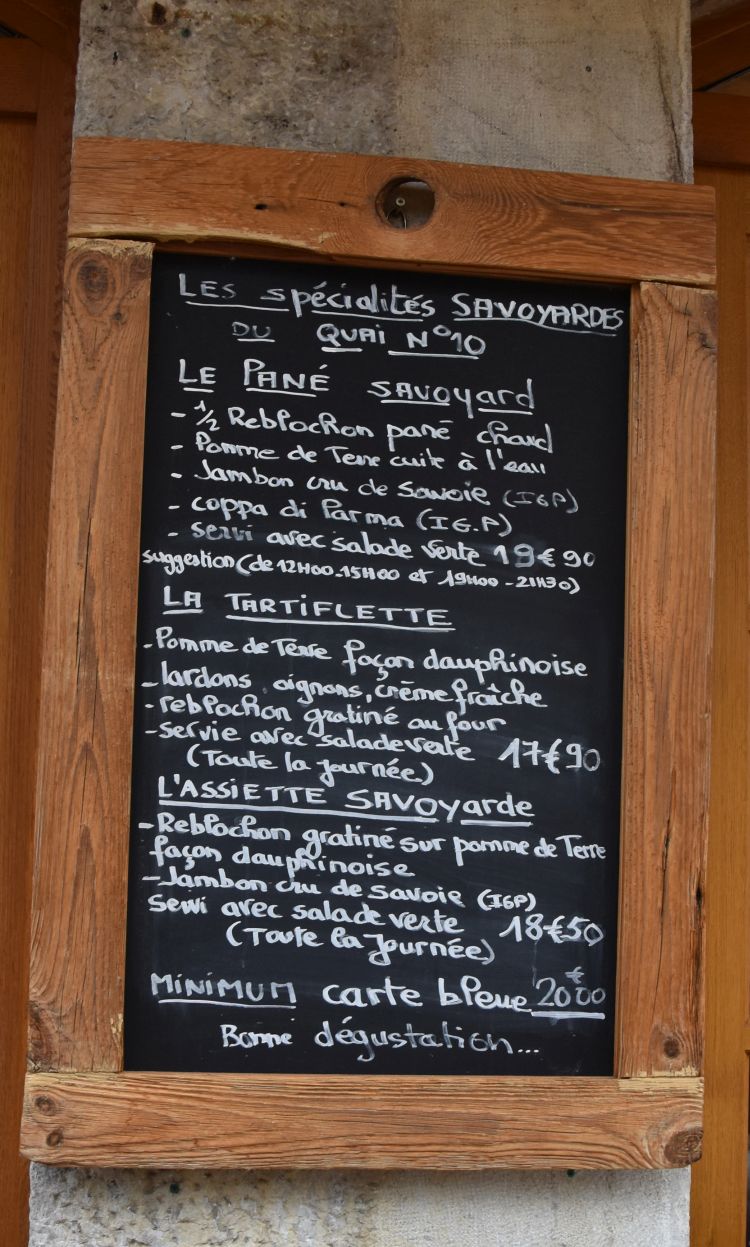 LES spécialités SAVOYARDES
DU QUAI N°10
LE PANÉ SAVOYARD
- 1/2 Reblochon pané chaud
- Pomme de Terre cuite à l'eau
- Jambon cru de Savoie (IGP)
- coppa di Parma (I.G.P)
- servi avec salade verte 19€90
suggestion (de 12H00.15H00 et 19H00-21H30)
LA TARTIFLETTE
- Pomme de Terre façon dauphinoise
- lardons, oignons, crème fraîche
- reblochon gratiné au four
- servie avec salade verte 17€90
(Toute la journée)
L'ASSIETTE SAVOYarde
- Reblochon gratiné sur pomme de Terre
façon dauphinoise
- Jambon cru de Savoie (IGP)
servi avec salade verte 18€50
(Toute la Journée)
MINIMUM carte bleue 20€00
Bonne dégustation...